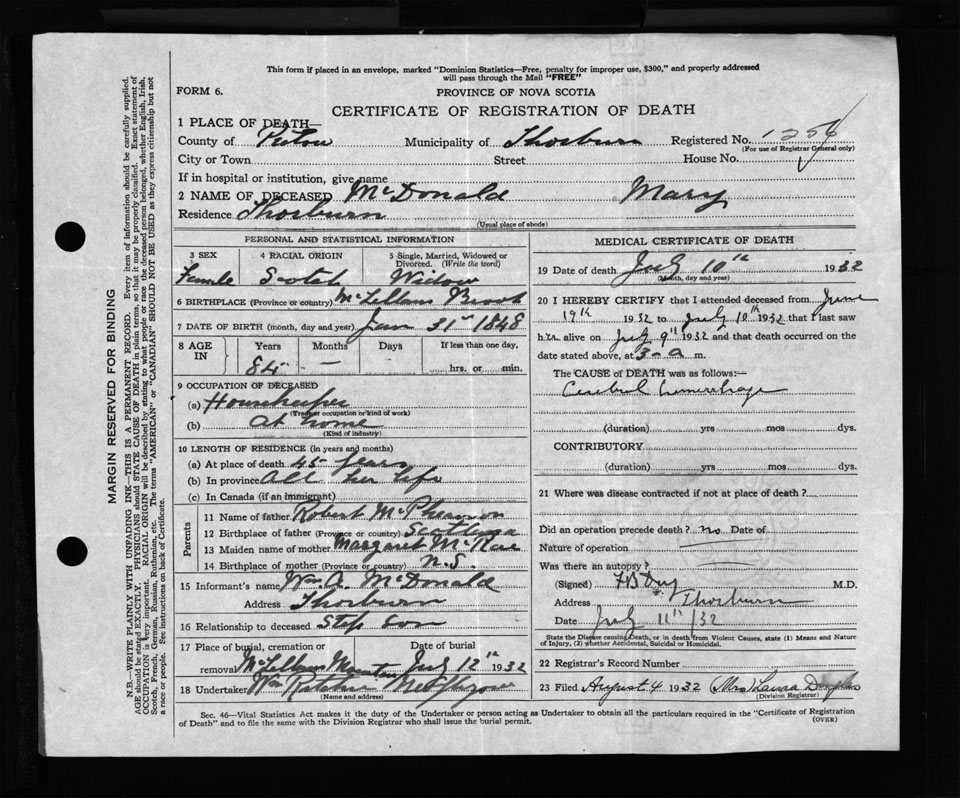 This form if placed in an envelope, marked "Dominion Statistics—Free, penalty for improper use, $300," and properly addressed
will pass through the Mail "FREE"
FORM 6.
PROVINCE OF NOVA SCOTIA
CERTIFICATE OF REGISTRATION OF DEATH
1 PLACE OF DEATH—
County of Pictou Municipality of Thorburn Registered No. 1254
(For use of Registrar General only)
City or Town Street House No.
If in hospital or institution, give name
2 NAME OF DECEASED McDonald Mary
Residence Thorburn
(Usual place of abode)
PERSONAL AND STATISTICAL INFORMATION
3 SEX 4 RACIAL ORIGIN 5 Single, Married, Widowed or
Divorced. (Write the word)
Female Scotch Widow
6 BIRTHPLACE (Province or country) McLellans Brook
7 DATE OF BIRTH (month, day and year) Jan 31st 1848
8 AGE IN Years Months Days If less than one day,
84 — hrs. or min.
9 OCCUPATION OF DECEASED
(a) Housekeeper
(Trade or occupation or kind of work)
(b) at home
(Kind of industry)
10 LENGTH OF RESIDENCE (in years and months)
(a) At place of death 45 years
(b) In province All her life
(c) In Canada (if an immigrant)
Parents
11 Name of father Robert McPherson
12 Birthplace of father (Province or country)
13 Maiden name of mother Margaret McRae
14 Birthplace of mother (Province or country) N.S.
15 Informant's name Wm. McDonald
Address Thorburn
16 Relationship to deceased Step Son
17 Place of burial, cremation or Date of burial
removal McLellans Mountain July 12th 1932
18 Undertaker Wm New Glasgow
(Name and address)
MEDICAL CERTIFICATE OF DEATH
19 Date of death July 10th 1932
(Month, day and year)
20 I HEREBY CERTIFY that I attended deceased from June
19th 1932 to July 10th 1932 that I last saw
her alive on July 9th 1932 and that death occurred on the
date stated above, at 3-a m.
The CAUSE of DEATH was as follows:—
Cerebral hemorrhage
(duration) yrs mos dys.
CONTRIBUTORY
(duration) yrs mos dys.
21 Where was disease contracted if not at place of death?
Did an operation precede death? no Date of
Nature of operation
Was there an autopsy?
(Signed) M.D.
Address Thorburn
Date July 11th /32
State the Disease causing Death, or in death from Violent Causes, state (1) Means and Nature
of Injury, (2) whether Accidental, Suicidal or Homicidal.
22 Registrar's Record Number
23 Filed August 4 1932 (Mrs) Laura Douglas
(Division Registrar)
Sec. 46—Vital Statistics Act makes it the duty of the Undertaker or person acting as Undertaker to obtain all the particulars required in the "Certificate of Registration
of Death" and to file the same with the Division Registrar who shall issue the burial permit. (OVER)
MARGIN RESERVED FOR BINDING
N.B.—WRITE PLAINLY WITH UNFADING INK—THIS IS A PERMANENT RECORD. Every item of information should be carefully supplied.
AGE should be stated EXACTLY. PHYSICIANS should STATE CAUSE OF DEATH in plain terms, so that it may be properly classified. Exact statement of
OCCUPATION is very important. RACIAL ORIGIN will be described by stating to what people or race the deceased person belonged, whether English, Irish,
Scotch, French, German, Russian, Ruthenian, etc. The terms "AMERICAN" or "CANADIAN" SHOULD NOT BE USED as they express citizenship but not
a race or people. See instructions on back of Certificate.